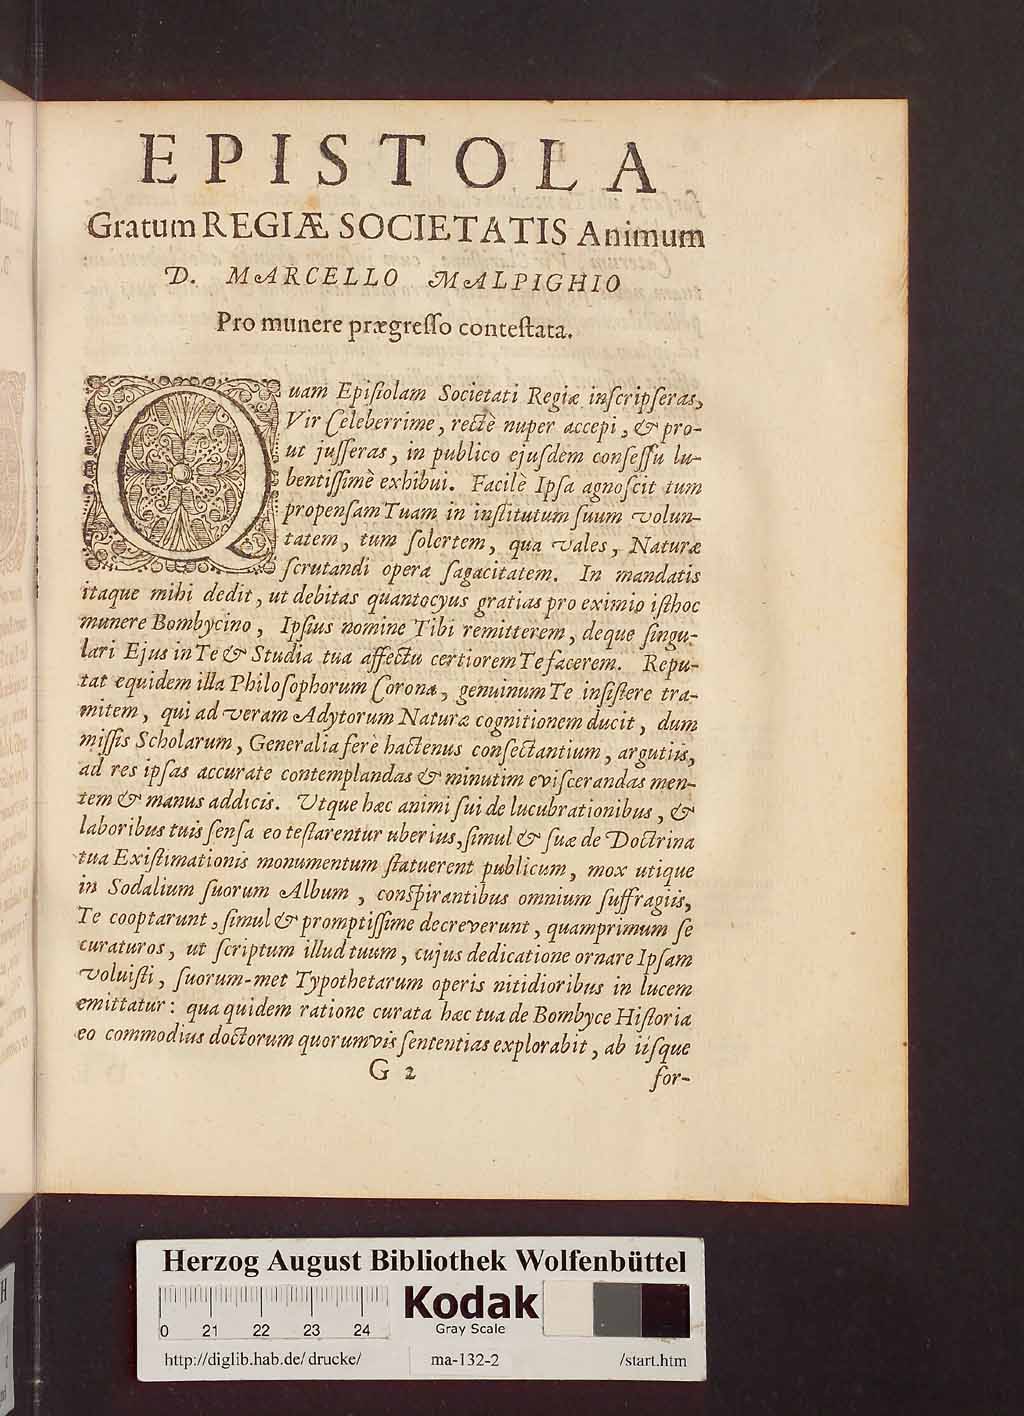 EPISTOLA
Gratum REGIÆ SOCIETATIS Animum
D. MARCELLO MALPIGHIO
Pro munere prægreſſo conteſtata.
Quam Epiſtolam Societati Regiæ inſcripſeras,
Vir Celeberrime, rectè nuper accepi, & pro-
ut juſſeras, in publico ejuſdem conſeſſu lu-
bentiſſimè exhibui. Facilè Ipſa agnoſcit tum
propenſam Tuam in inſtitutum ſuum volun-
tatem, tum ſolertem, qua vales, Naturæ
ſcrutandi opera ſagacitatem. In mandatis
itaque mihi dedit, ut debitas quantocyus gratias pro eximio iſthoc
munere Bombycino, Ipſius nomine Tibi remitterem, deque ſingu-
lari Ejus in Te & Studia tua affectu certiorem Te facerem. Repu-
tat equidem illa Philoſophorum Corona, genuinum Te inſiſtere tra-
mitem, qui ad veram Adytorum Naturæ cognitionem ducit, dum
miſſis Scholarum, Generalia ferè hactenus conſectantium, argutiis,
ad res ipſas accurate contemplandas & minutim eviſcerandas men-
tem & manus addicis. Utque hæc animi ſui de lucubrationibus, &
laboribus tuis ſenſa eo teſtarentur uberius, ſimul & ſuæ de Doctrina
tua Exiſtimationis monumentum ſtatuerent publicum, mox utique
in Sodalium ſuorum Album, conſpirantibus omnium ſuffragiis,
Te cooptarunt, ſimul & promptiſſime decreverunt, quamprimum ſe
curaturos, ut ſcriptum illud tuum, cujus dedicatione ornare Ipſam
voluiſti, ſuorum-met Typothetarum operis nitidioribus in lucem
emittatur: qua quidem ratione curata hæc tua de Bombyce Hiſtoria
eo commodius doctorum quorumvis ſententias explorabit, ab iiſque
G 2
for-
Herzog August Bibliothek Wolfenbüttel
0 21 22 23 24
Kodak
Gray Scale
http://diglib.hab.de/drucke/ ma-132-2 /start.htm